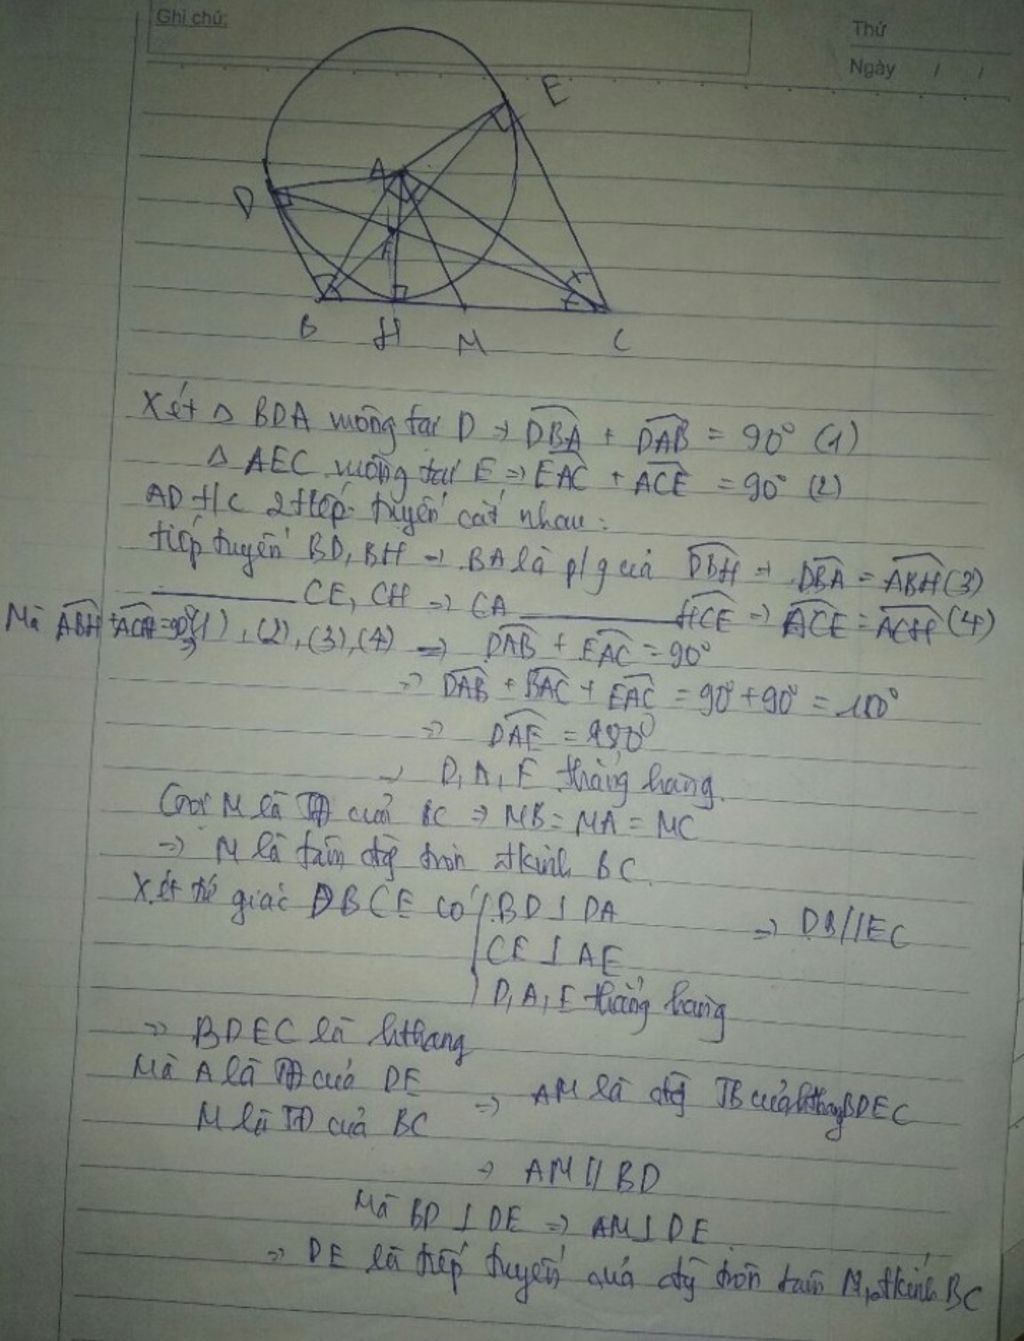 Ghi chú:
Thứ
Ngày / /
E
A
D
I
B H M C
Xét △ BDA vuông tại D → DBA + DAB = 90° (1)
△ AEC vuông tại E => EAC + ACE = 90° (2)
AD t/c 2 tiếp tuyến cắt nhau:
tiếp tuyến BD, BH → BA là p/g của DBH → DBA = ABH (3)
CE, CH => CA HCE => ACE = ACH (4)
Mà ABH + ACH = 90° (1), (2), (3), (4) => DAB + EAC = 90°
=> DAB + BAC + EAC = 90° + 90° = 180°
=> DAE = 180°
→ D, A, E thẳng hàng.
Gọi M là TĐ của BC => MB = MA = MC
=> M là tâm đg tròn đkính BC.
Xét tứ giác DBCE có BD ⊥ DA
CE ⊥ AE
D, A, E thẳng hàng
=> DB // EC
=> BDEC là hthang
Mà A là TĐ của DE
M là TĐ của BC
=> AM là đg TB của hthang BDEC
=> AM // BD
Mà BD ⊥ DE => AM ⊥ DE
=> DE là tiếp tuyến của đg tròn tâm M, đkính BC